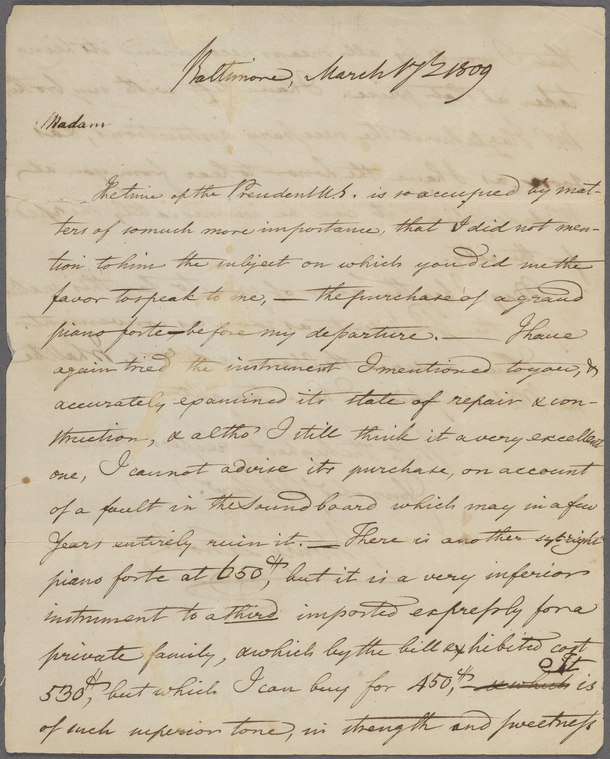 Baltimore, March 17th 1809
Madam
The time of the President U.S. is so occupied by mat-
ters of so much more importance, that I did not men-
tion to him the subject on which you did me the
favor to speak to me, — the purchase of a grand
piano forte — before my departure. — I have
again tried the instrument I mentioned to you, &
accurately examined its state of repair & con-
struction, & altho' I still think it a very excellent
one, I cannot advise its purchase, on account
of a fault in the sound board which may in a few
Years entirely ruin it. — There is another upright
piano forte at 650 ds, but it is a very inferior
instrument to a third imported expressly for a
private family, & which by the bill exhibited cost
530 ds, but which I can buy for 450 ds, — & which It is
of such superior tone, in strength and sweetness